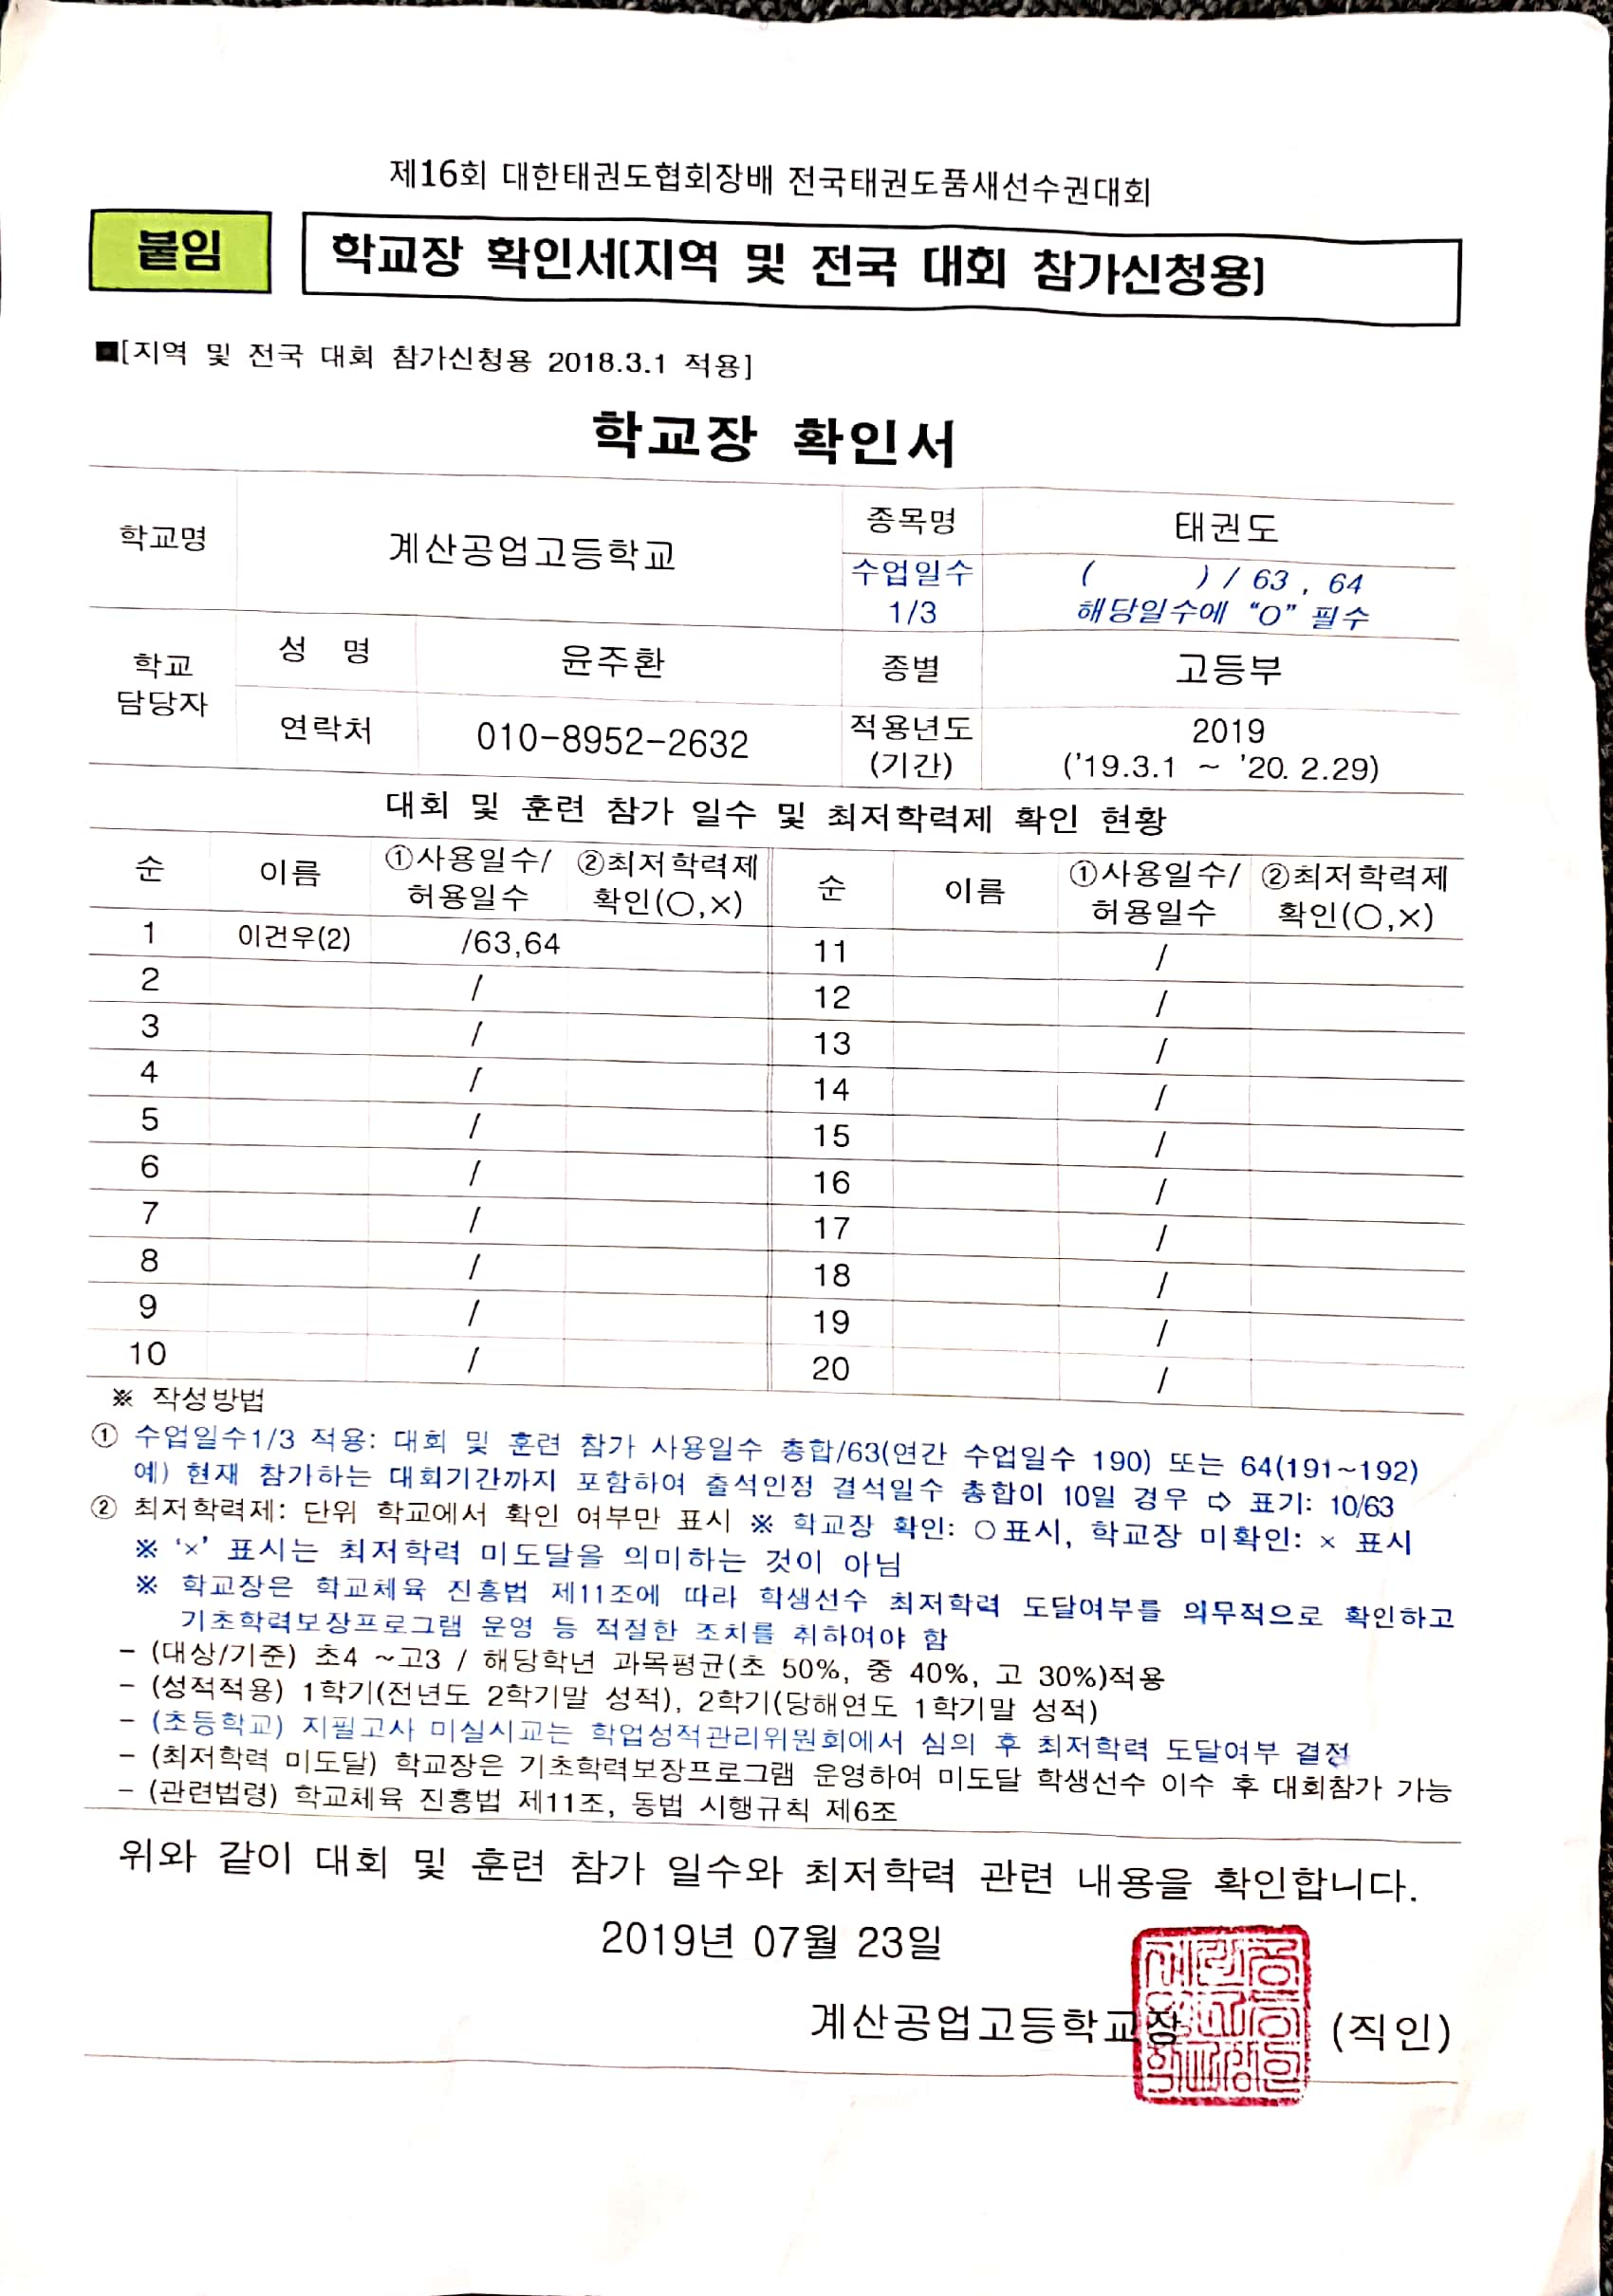 제16회 대한태권도협회장배 전국태권도품새선수권대회
붙임
학교장 확인서[지역 및 전국 대회 참가신청용]
■[지역 및 전국 대회 참가신청용 2018.3.1 적용]
학교장 확인서
학교명 계산공업고등학교 종목명 태권도
수업일수 1/3 ( ) / 63 , 64
해당일수에 “O” 필수
학교 담당자 성 명 윤주환 종별 고등부
연락처 010-8952-2632 적용년도 (기간) 2019
('19.3.1 ~ '20. 2.29)
대회 및 훈련 참가 일수 및 최저학력제 확인 현황
순 이름 ①사용일수/허용일수 ②최저학력제 확인(○,×) 순 이름 ①사용일수/허용일수 ②최저학력제 확인(○,×)
1 이건우(2) /63,64 11 /
2 / 12 /
3 / 13 /
4 / 14 /
5 / 15 /
6 / 16 /
7 / 17 /
8 / 18 /
9 / 19 /
10 / 20 /
※ 작성방법
① 수업일수1/3 적용: 대회 및 훈련 참가 사용일수 총합/63(연간 수업일수 190) 또는 64(191~192)
예) 현재 참가하는 대회기간까지 포함하여 출석인정 결석일수 총합이 10일 경우 ⇨ 표기: 10/63
② 최저학력제: 단위 학교에서 확인 여부만 표시 ※ 학교장 확인: ○표시, 학교장 미확인: × 표시
※ ‘×’ 표시는 최저학력 미도달을 의미하는 것이 아님
※ 학교장은 학교체육 진흥법 제11조에 따라 학생선수 최저학력 도달여부를 의무적으로 확인하고
기초학력보장프로그램 운영 등 적절한 조치를 취하여야 함
- (대상/기준) 초4 ~고3 / 해당학년 과목평균(초 50%, 중 40%, 고 30%)적용
- (성적적용) 1학기(전년도 2학기말 성적), 2학기(당해연도 1학기말 성적)
- (초등학교) 지필고사 미실시교는 학업성적관리위원회에서 심의 후 최저학력 도달여부 결정
- (최저학력 미도달) 학교장은 기초학력보장프로그램 운영하여 미도달 학생선수 이수 후 대회참가 가능
- (관련법령) 학교체육 진흥법 제11조, 동법 시행규칙 제6조
위와 같이 대회 및 훈련 참가 일수와 최저학력 관련 내용을 확인합니다.
2019년 07월 23일
계산공업고등학교장 (직인)